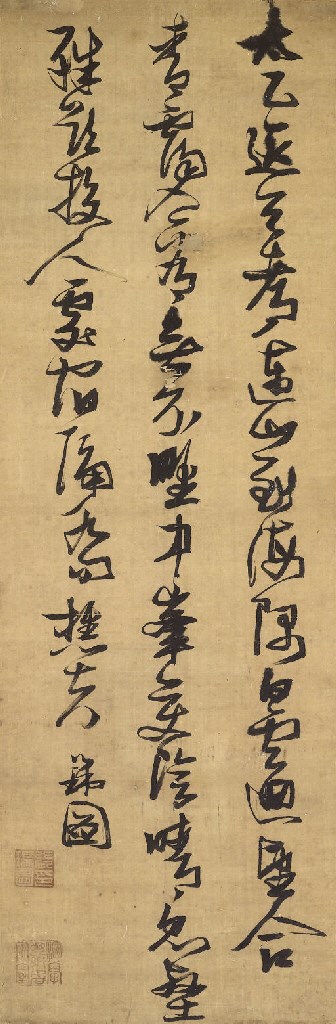 太乙近天都連山到海隅白雲迴望合
青靄入看無分野中峯變陰晴眾壑
殊欲投人處宿隔水問樵夫 瑞圖